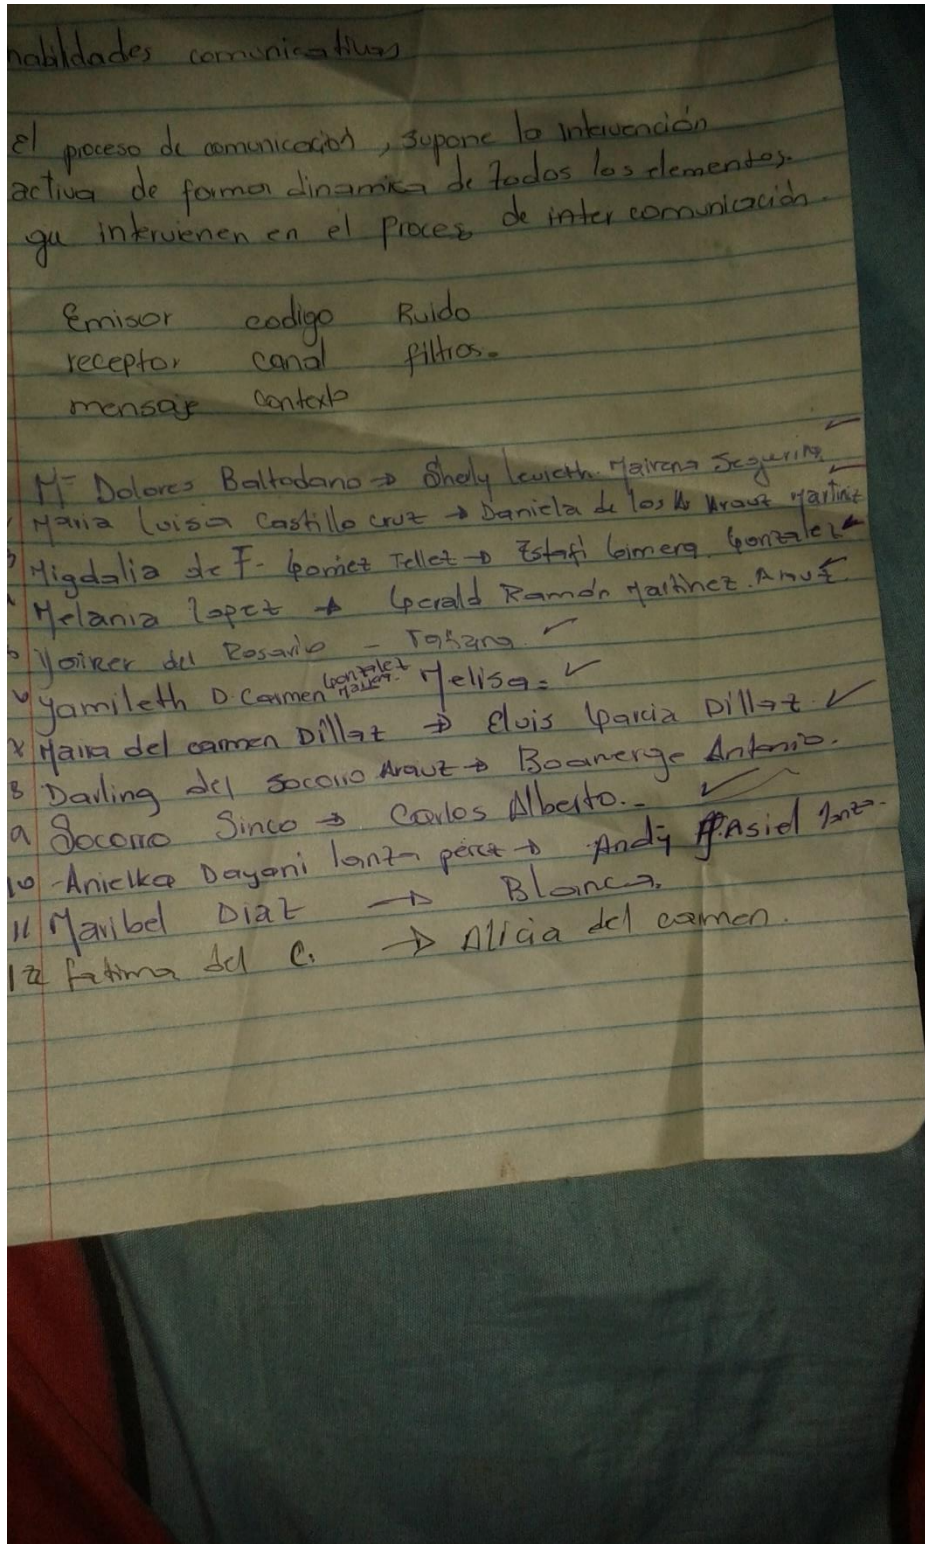 habildades comunicativas
El proceso de comunicación, supone la intervención
activa de forma dinamica de todos los elementos.
qu intervienen en el proces de inter comunicación.
Emisor codigo Ruido
receptor canal filtros.
mensaje contexto
Mª Dolores Baltodano → Shely Mairena
Maria Luisa Castillo cruz → Daniela de los A Arauz Martinez
Migdalia de F. Gomez Tellez → Gonzalez
Melania lopez → Gerald Ramón Martinez. Arauz.
Yoirer del Rosario -
Yamileth D. Carmen Gonzalez Melisa.
Maria del carmen Dillaz → Elvis Garcia Dillaz.
8 Darling del socorro Arauz → Boanerge Antonio.
9 Socorro Sinco → Carlos Alberto.-
10 - Anielka Dayani lanza pérez → Andy Asiel
11 Maribel Diaz → Blanca.
12 fatima del C. → Alicia del carmen.